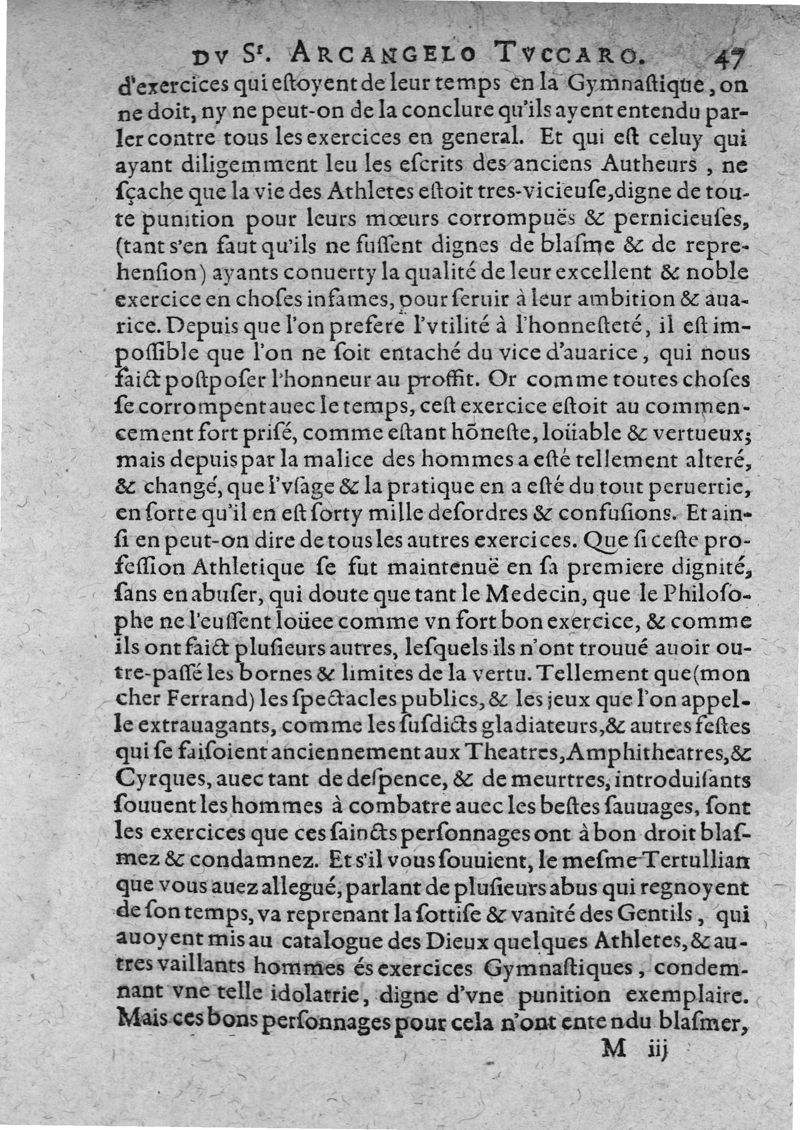 DV Sr. ARCANGELO TVCCARO. 47
d'exercices qui eſtoyent de leur temps en la Gymnaſtique, on
ne doit, ny ne peut-on de la conclure qu'ils ayent entendu par-
ler contre tous les exercices en general. Et qui eſt celuy qui
ayant diligemment leu les eſcrits des anciens Autheurs, ne
ſçache que la vie des Athletes eſtoit tres-vicieuſe, digne de tou-
te punition pour leurs mœurs corrompuës & pernicieuſes,
(tant s'en faut qu'ils ne fuſſent dignes de blaſme & de repre-
henſion) ayants conuerty la qualité de leur excellent & noble
exercice en choſes infames, pour ſeruir à leur ambition & aua-
rice. Depuis que l'on prefere l'vtilité à l'honneſteté, il eſt im-
poſſible que l'on ne ſoit entaché du vice d'auarice, qui nous
faict poſtpoſer l'honneur au proffit. Or comme toutes choſes
ſe corrompent auec le temps, ceſt exercice eſtoit au commen-
cement fort priſé, comme eſtant hõneſte, loüable & vertueux;
mais depuis par la malice des hommes a eſté tellement alteré,
& changé, que l'vſage & la pratique en a eſté du tout peruertie,
en ſorte qu'il en eſt ſorty mille deſordres & confuſions. Et ain-
ſi en peut-on dire de tous les autres exercices. Que ſi ceſte pro-
feſſion Athletique ſe fut maintenuë en ſa premiere dignité,
ſans en abuſer, qui doute que tant le Medecin, que le Philoſo-
phe ne l'euſſent loüee comme vn fort bon exercice, & comme
ils ont faict pluſieurs autres, leſquels ils n'ont trouué auoir ou-
tre-paſſé les bornes & limites de la vertu. Tellement que (mon
cher Ferrand) les ſpectacles publics, & les jeux que l'on appel-
le extrauagants, comme les ſuſdicts gladiateurs, & autres feſtes
qui ſe faiſoient anciennement aux Theatres, Amphitheatres, &
Cyrques, auec tant de deſpence, & de meurtres, introduiſants
ſouuent les hommes à combatre auec les beſtes ſauuages, ſont
les exercices que ces ſaincts perſonnages ont à bon droit blaſ-
mez & condamnez. Et s'il vous ſouuient, le meſme Tertullian
que vous auez allegué, parlant de pluſieurs abus qui regnoyent
de ſon temps, va reprenant la ſottiſe & vanité des Gentils, qui
auoyent mis au catalogue des Dieux quelques Athletes, & au-
tres vaillants hommes és exercices Gymnaſtiques, condem-
nant vne telle idolatrie, digne d'vne punition exemplaire.
Mais ces bons perſonnages pour cela n'ont entendu blaſmer,
M iij